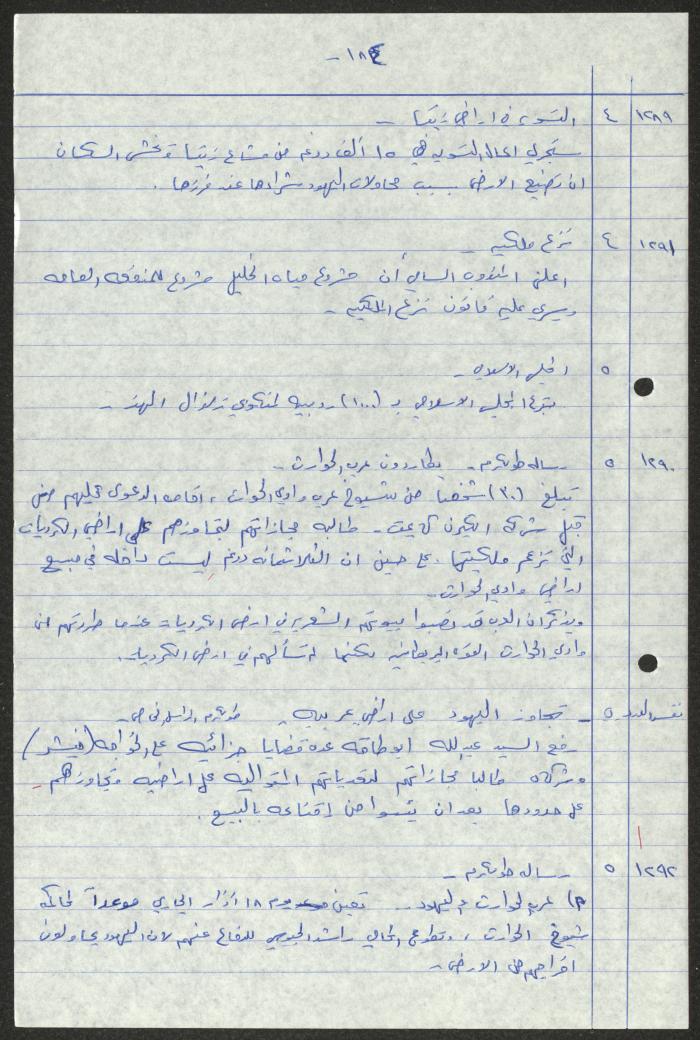 - ١٨٤ -
١٢٨٩ ٤ التسوية في اراضي زيتا -
ستجري اعمال التسوية في ١٥ ألف دونم من مشاع زيتا وتخشى السكان
ان تضيع الارض بسبب محاولات اليهود شراءها عند فرزها .
١٢٩١ ٤ نزع ملكية -
اعلن المندوب السامي أن مشروع مياه الخليل مشروع للمنفعة العامة
ويسري عليه قانون نزع الملكية -
٥ المجلس الاسلامي -
يتبرع المجلس الاسلامي بـ (١٠٠٠) روبية لمنكوبي زلزال الهند -
١٢٩٠ ٥ رسالة طولكرم - يطاردون عرب الحوارث -
تبلغ (٣٠) شخصا من شيوخ عرب وادي الحوارث ، اقامة الدعوى عليهم من
قبل شركة الكيرن كايمت - طالبة مجازاتهم لتجاوزهم على اراضي الكرديات
التي تزعم ملكيتها . على حين ان الثلاثمائة دونم ليست داخلة في مبيع
اراضي وادي الحوارث -
ويذكر ان العرب قد نصبوا بيوتهم الشعر في ارض الكرديات عندما طردتهم من
وادي الحوارث القوة البريطانية لكنها لم تسألهم في ارض الكرديات .
نفس العدد ٥ - تجاوز اليهود على اراضي عربية - طولكرم
رفع السيد عبد الله ابو طاقة عدة قضايا جزائية على الخواجة (فيشر)
وشركاه طالبا مجازاتهم لتعدياتهم المتوالية على اراضيه وتجاوزهم -
على حدودها بعد ان يئسوا من اقناعه بالبيع .
١٢٩٢ ٥ رسالة طولكرم -
عرب الحوارث واليهود - تعين يوم ١٨ اذار الجاري موعداً لمحاكمة
شيوخ الحوارث ، وتطوع المحامي راشد الجيوسي للدفاع عنهم لان اليهود يحاولون
اخراجهم من الارض -